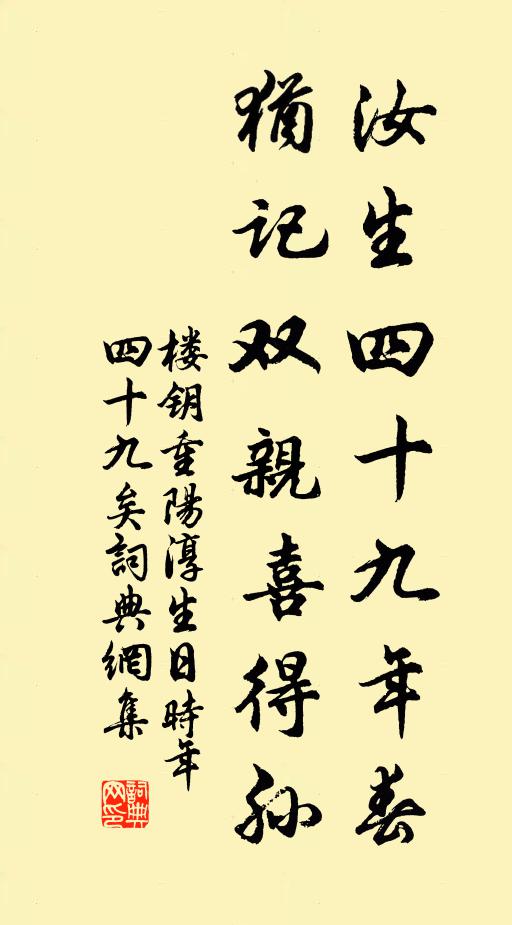 汝生四十九年春
猶记双親喜得孙
楼钥重陽淳生日時年
四十九矣詞典網集
詞典网印